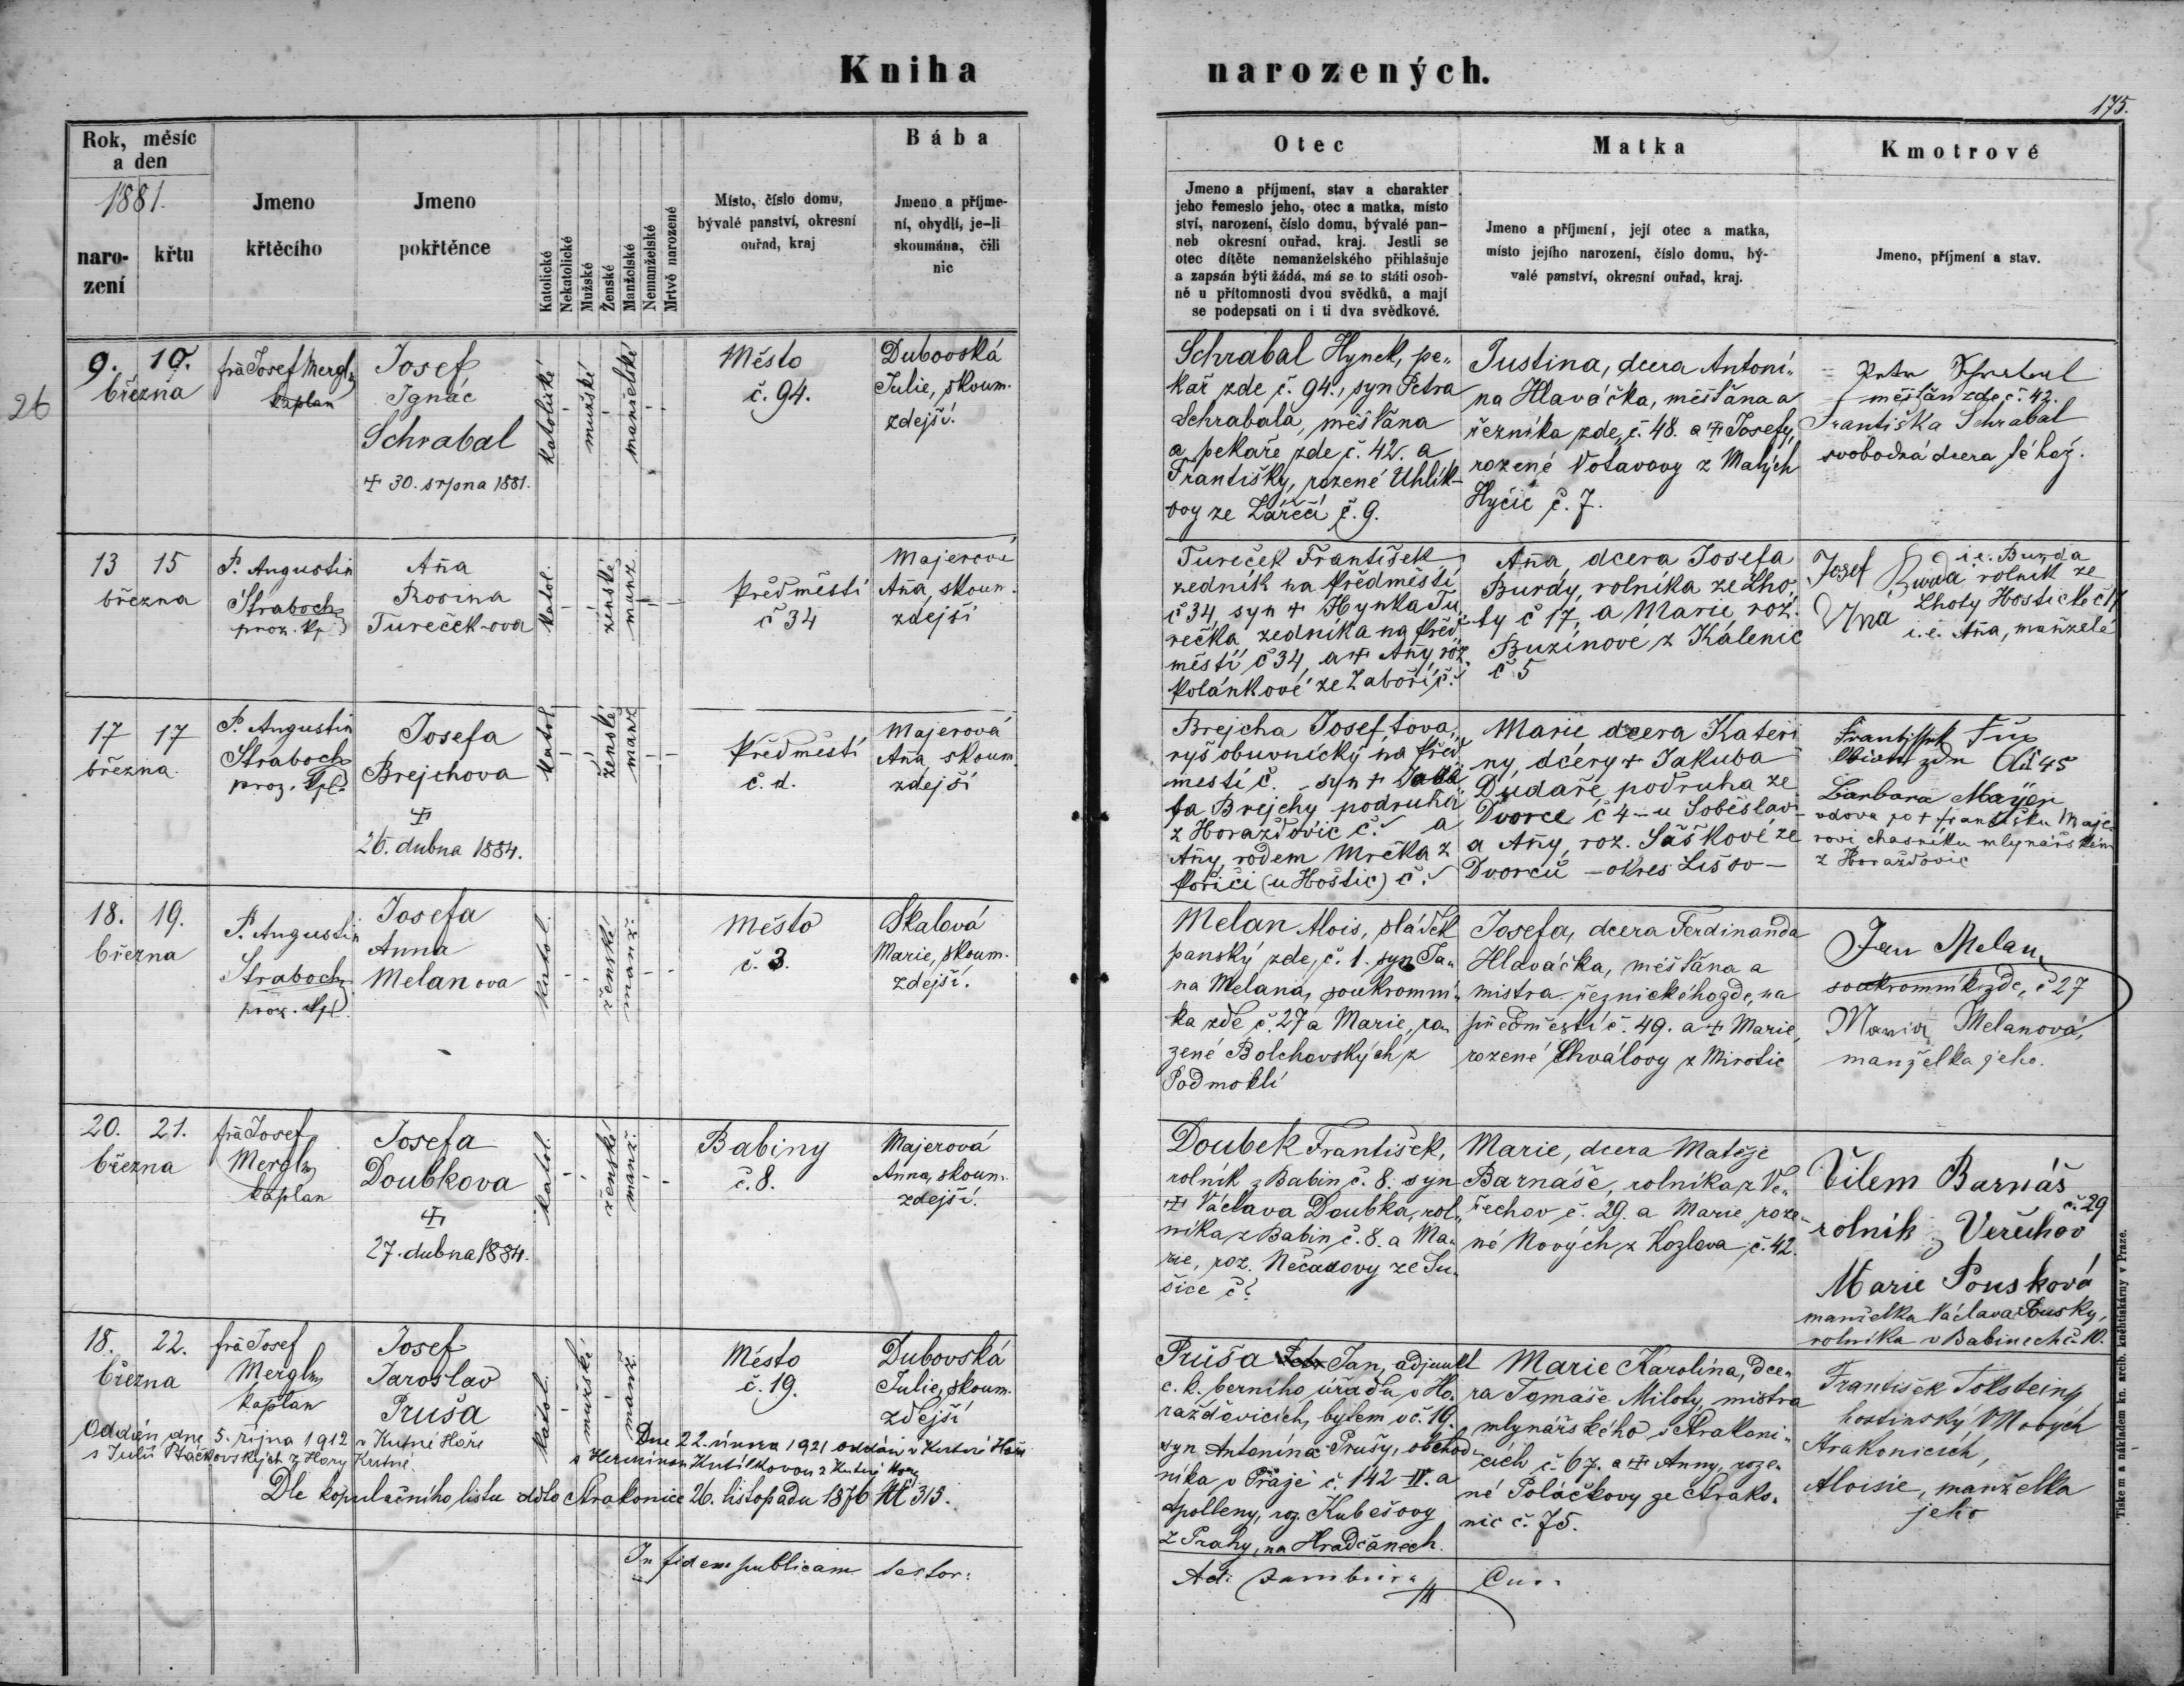 Kniha narozených.
175.
Rok, měsíc
a den
1881.
naro-
zení
křtu
Jmeno
křtěcího
Jmeno
pokřtěnce
Katolické
Nekatolické
Mužské
Ženské
Manželské
Nemanželské
Mrtvě narozené
Místo, číslo domu,
bývalé panství, okresní
ouřad, kraj
Bába
Jmeno a příjme-
ní, obydlí, je-li
skoumána, čili
nic
Otec
Jmeno a příjmení, stav a charakter
jeho řemeslo jeho, otec a matka, místo
ství, narození, číslo domu, bývalé pan-
neb okresní ouřad, kraj. Jestli se
otec dítěte nemanželského přihlašuje
a zapsán býti žádá, má se to státi osob-
ně u přítomnosti dvou svědků, a mají
se podepsati on i ti dva svědkové.
Matka
Jmeno a příjmení, její otec a matka,
místo jejího narození, číslo domu, bý-
valé panství, okresní ouřad, kraj.
Kmotrové
Jmeno, příjmení a stav.
26
9. 10.
března
Josef Mergl
kaplan
Josef
Ignác
Schrabal
+ 30. srpna 1881.
katolické
mužské
manželské
Město
č. 94.
Dubovská
Julie, skoum.
zdejší.
Schrabal Hynek, pe-
kař zde č. 94., syn Petra
Schrabala, měšťana
a pekaře zde č. 42. a
Františky, rozené Uhlík-
ovy ze č. 9.
Justina, dcera Antoní-
na Hlaváčka, měšťana a
řezníka zde č. 48. a + Josefy,
rozené Votavovy z Malých
Hyčic č. 7.
měšťan zde č. 42.
Františka Schrabal
svobodná dcera téhož.
13 15
března
P. Augustin
Straboch
proz. kpl
Aña
Rosina
Turečék-ova
katol.
ženské
manž.
Předměstí
č 34
Majerová
Aña, skoum.
zdejší
Tureček František
zedník na Předměstí
č 34, syn + Hynka Tu-
rečka, zedníka na Před-
městí č 34, a + Añy roz.
Polánkové ze Záboří č.
Aña, dcera Josefa
Burdy, rolníka ze Lho-
ty č 17, a Marie roz.
Buzínové z Kalenic
č 5
Josef i.e. Burda
rolník ze
Lhoty Hostické č 17
i.e. Aña, manželé
17 17
března
P. Augustin
Straboch
proz. kpl.
Josefa
Brejchova
+
26. dubna 1884.
katol.
ženské
manž
Předměstí
č. d.
Majerová
Aña, skoum.
zdejší
Brejcha Josef, tova-
ryš obuvnický na Před-
městí č. - syn + Jaku-
ba Brejchy podruha
z Horažďovic č. a
Añy, rodem Mrčka z
Poříčí (u Hoštic) č.
Marie, dcera Kateři
ny, dcery + Jakuba
Dudaře podruha ze
Dvorce č 4 - u Soběslav-
a Añy, roz. Šáškové ze
Dvorců - okres Lišov -
zdn 45
Barbara Mayer
vdova po + Františku Maje-
rovi chasníku mlynářském
z Horažďovic
18. 19.
března
P. Augustin
Straboch
proz. kpl.
Josefa
Anna
Melanova
katol.
ženské
manž.
Město
č. 3.
Skalová
Marie, skoum.
zdejší.
Melan Alois, sládek
panský zde, č. 1. syn Ja-
na Melana, soukromní-
ka zde č. 27 a Marie, ro-
zené Bolchovských z
Podmoklí
Josefa, dcera Ferdinanda
Hlaváčka, měšťana a
mistra řeznického zde, na
předměstí č. 49. a + Marie,
rozené Chválovy z Mirotic
Jan Melan,
soukromník zde, č 27
Melanová,
manželka jeho.
20. 21.
března
Josef
Mergl
kaplan
Josefa
Doubkova
+
27. dubna 1884.
katol.
ženské
manž.
Babiny
č. 8.
Majerová
Anna, skoum.
zdejší.
Doubek František,
rolník z Babin č. 8. syn
+ Václava Doubka, rol-
níka z Babin č. 8. a Ma-
rie, roz. Nečadovy ze Su-
šice č?
Marie, dcera Matěje
Barnáše, rolníka z Ve-
řechov č. 29. a Marie, roze-
né Nových z Kozlova č. 42.
Vilem Barnáš
č. 29
rolník z Veřechov
Marie Pousková
manželka Václava Pousky,
rolníka v Babinech č. 10.
18. 22.
března
Josef
Mergl
kaplan
Josef
Jaroslav
Pruša
katol.
mužské
manž.
Město
č. 19.
Dubovská
Julie, skoum.
zdejší
Oddán dne 5. října 1912 v Kutné Hoře
s Julií Ptáčkovských z Hory Kutné.
Dne 22. února 1921 oddán v Kutné Hoře
s Hermínou Kubílkovou z Kutné Hory
Dle kopulačního listu ddto Strakonice 26. listopadu 1876 № 315.
Průša Jan, adjunkt
c. k. berního úřadu v Ho-
ražďovicích, bytem v č. 19.
syn Antonína Prušy, obchod-
níka v Praze č. 142-IV. a
Apolleny, roz. Kubešovy
z Prahy, na Hradčanech.
Marie Karolína, dce-
ra Tomáše Miloty, mistra
mlynářského v Strakoni-
cích č. 67. a + Anny, roze-
né Poláčkovy ze Strako-
nic č. 75.
František Tolstein
hostinský v Nových
Strakonicích,
Aloisie, manželka
jeho
In fidem publicam testor:
Tiskem a nákladem kn. arcib. knihtiskárny v Praze.